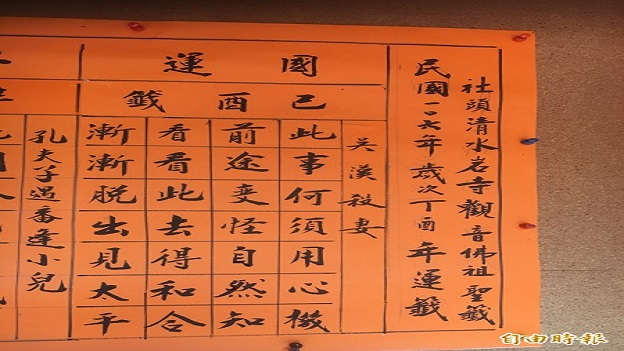 社頭清水岩寺觀音佛祖聖籤
民國一〇六年歲次丁酉年運籤
國運
己酉籤
吳漢殺妻
此事何須用心機
前途變怪自然知
看看此去得和合
漸漸脫出見太平
孔夫子遇番逢小兒
自由時報